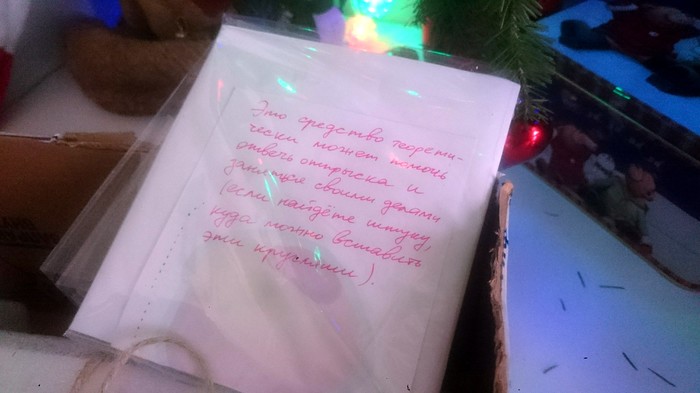 Это средство теорети-
чески может помочь
отвлечь отпрыска и
заняться своими делами
(если найдёте штуку,
куда можно вставить
эти кругляши).